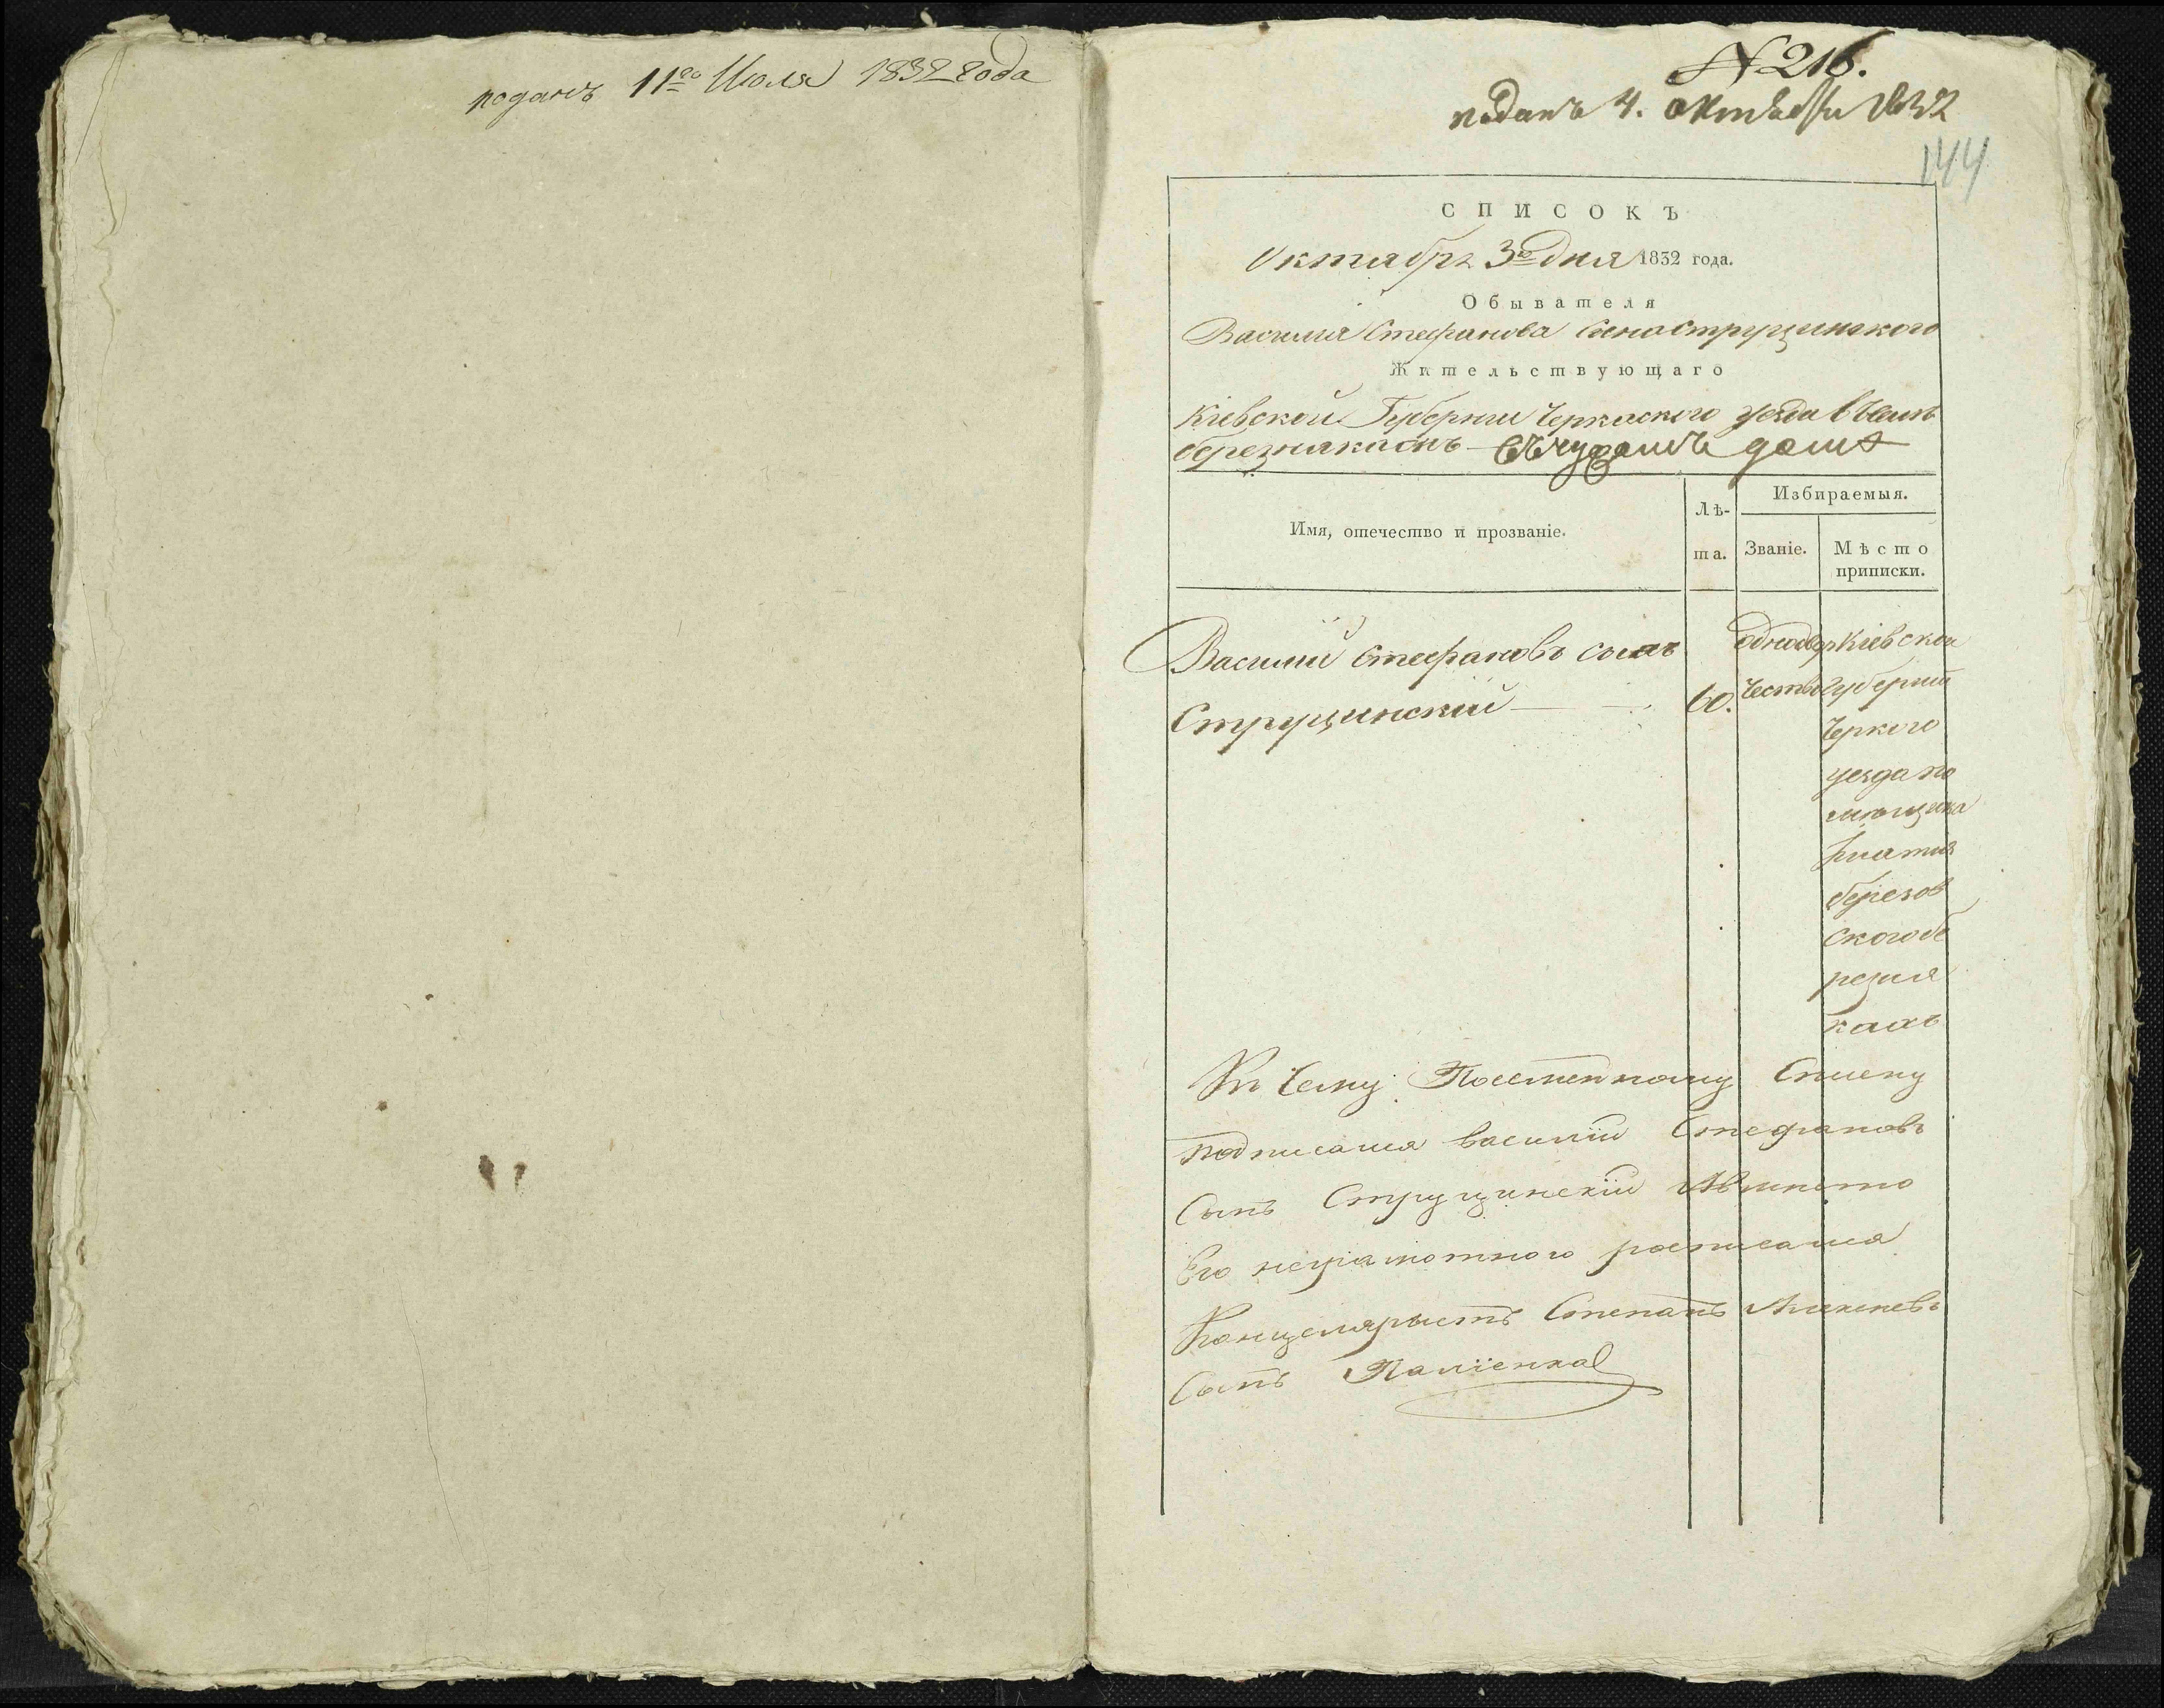 поданъ 11го Июля 1832 года
№ 216.
поданъ 4. октября 1832
144
СПИСОКЪ
Октября 3го дня 1832 года.
Обывателя
Василия Стефанова сина Струцинского
Жительствующаго
Кіевской Губернии Черкаского уезда в селе
березнякахъ въ чужомъ доме
Имя, отечество и прозваніе.
Лѣ-
та.
Избираемыя.
Званіе.
Мѣсто
приписки.
Василий Стефановъ сынъ
Струцинский
60.
однодвор
чество
Кіевской
губерний
Черкого
уезда по
мещика
Игнатия
березов
ского бе
резня
кахъ
К сему Посемейному Списку
подписался Василий Стефановъ
Сынъ Струцинскій А вместо
Его неграмотного росписался
Канцелярыстъ Степанъ
Сынъ Паліенка